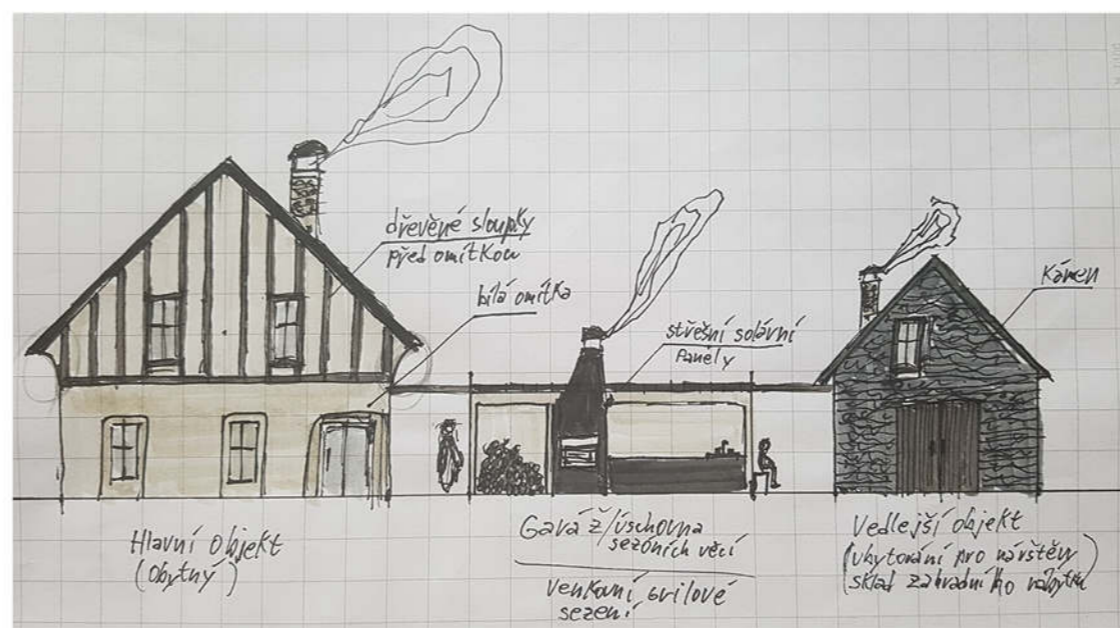 dřevěné sloupky
před omítkou
bílá omítka
střešní solární
Panely
Kámen
Hlavní objekt
(Obytný)
Garáž/úschovna
sezóních věcí
venkovní Grilové
sezení
Vedlejší objekt
(ubytování pro návštěv
sklad zahradního nábytku)